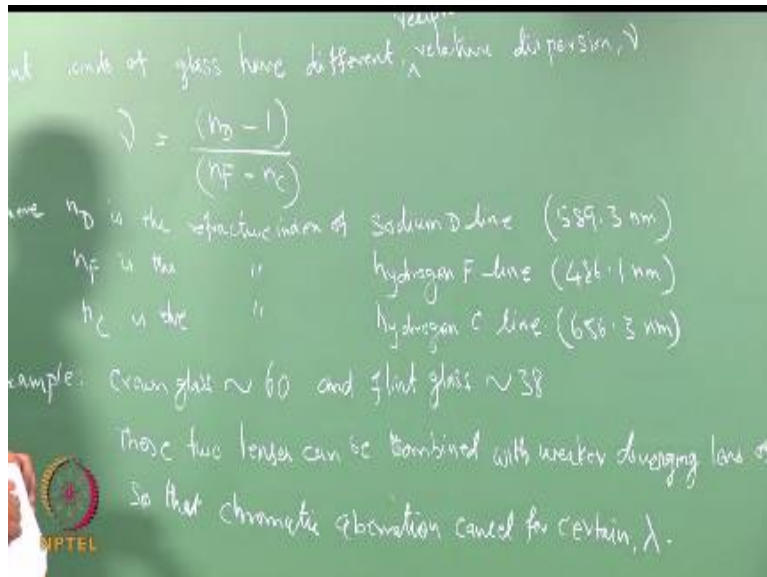 kinds of glass have different, relative dispersion, ν
ν = (nD - 1) / (nF - nC)
nD is the refractive index of Sodium D-line (589.3 nm)
nF is the " hydrogen F-line (486.1 nm)
nC is the " hydrogen C line (656.3 nm)
Crown glass ~ 60 and flint glass ~ 38
These two lenses can be combined with weaker diverging lens
So that chromatic aberration cancel for certain, λ.
NPTEL